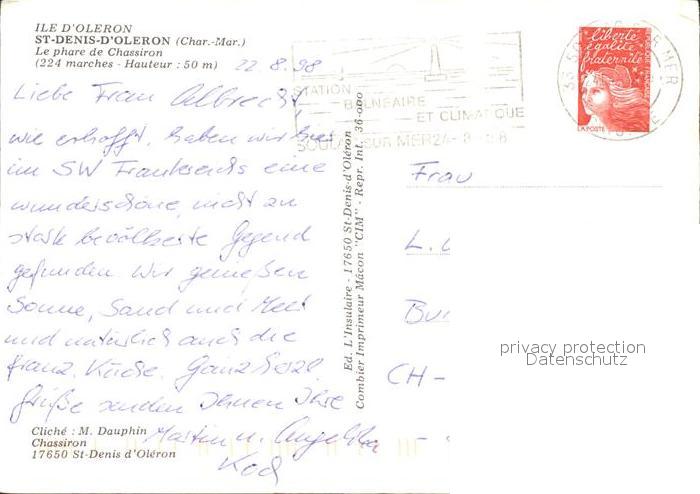 ILE D'OLERON
ST-DENIS-D'OLERON (Char.-Mar.)
Le phare de Chassiron
(224 marches - Hauteur : 50 m)
22.8.98
Liebe Frau Albrecht,
wie erhofft, haben wir hier
im SW Frankreichs eine
wunderschöne, nicht zu
stark bevölkerte Gegend
gefunden. Wir genießen
Sonne, Sand und Meer
und natürlich auch die
franz. Küche. Ganz herzl.
Grüße senden Ihnen Ihre
Martin u. Angelika
Cliché : M. Dauphin
Chassiron
17650 St-Denis d'Oléron
Ed. L'Insulaire - 17650 St-Denis-d'Oléron
Combier Imprimeur Mâcon "CIM" - Repr. Int. 36-000
STATION
BALNEAIRE
ET CLIMATIQUE
SUR MER
liberté
égalité
fraternité
LA POSTE
Frau
L.
CH-
privacy protection
Datenschutz